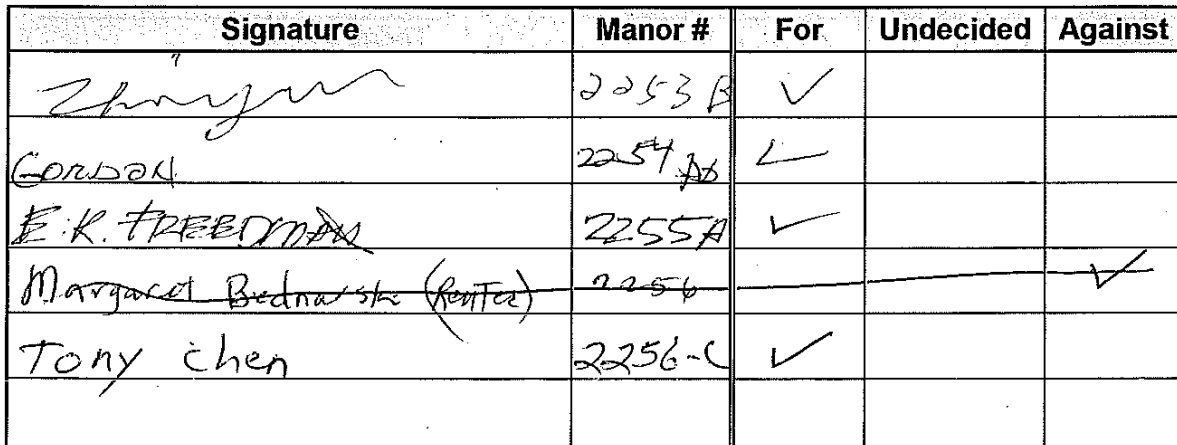 Signature Manor # For Undecided Against
2253 B ✓
Gordon 2254 ✓
E.K. FREEDMAN 2255A ✓
Margaret Bednarski (Renter) 2256 ✓
Tony chen 2256-C ✓